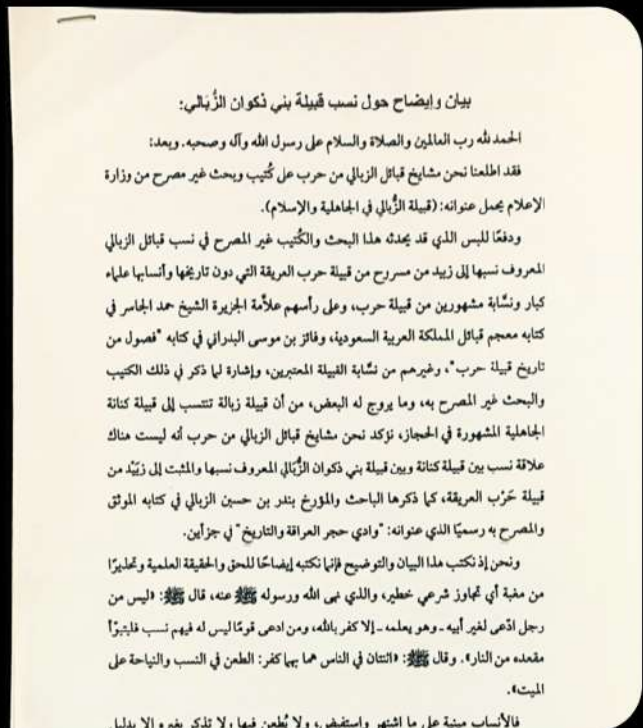 بيان وإيضاح حول نسب قبيلة بني ذكوان الزُّبَالي:
الحمد لله رب العالمين والصلاة والسلام على رسول الله وآله وصحبه. وبعد:
فقد اطلعنا نحن مشايخ قبائل الزبالي من حرب على كُتيب وبحث غير مصرح من وزارة
الإعلام يحمل عنوانه: (قبيلة الزُّبالي في الجاهلية والإسلام).
ودفعًا للبس الذي قد يحدثه هذا البحث والكُتيب غير المصرح في نسب قبائل الزبالي
المعروف نسبها إلى زبيد من مسروح من قبيلة حرب العريقة التي دون تاريخها وأنسابها علماء
كبار ونسَّابة مشهورين من قبيلة حرب، وعلى رأسهم علاَّمة الجزيرة الشيخ حمد الجاسر في
كتابه معجم قبائل المملكة العربية السعودية، وفائز بن موسى البدراني في كتابه "فصول من
تاريخ قبيلة حرب"، وغيرهم من نسَّابة القبيلة المعتبرين، وإشارة لما ذكر في ذلك الكتيب
والبحث غير المصرح به، وما يروج له البعض، من أن قبيلة زبالة تنتسب إلى قبيلة كنانة
الجاهلية المشهورة في الحجاز، نؤكد نحن مشايخ قبائل الزبالي من حرب أنه ليست هناك
علاقة نسب بين قبيلة كنانة وبين قبيلة بني ذكوان الزُّبَالي المعروف نسبها والمثبت إلى زبَيْد من
قبيلة حَرْب العريقة، كما ذكرها الباحث والمؤرخ بندر بن حسين الزبالي في كتابه الموثق
والمصرح به رسميًا الذي عنوانه: "وادي حجر العراقة والتاريخ" في جزأين.
ونحن إذ نكتب هذا البيان والتوضيح فإنما نكتبه إيضاحًا للحق والحقيقة العلمية وتحذيرًا
من مغبة أي تجاوز شرعي خطير، والذي نهى الله ورسوله ﷺ عنه، قال ﷺ: «ليس من
رجل ادّعى لغير أبيه ـ وهو يعلمه ـ إلا كفر بالله، ومن ادعى قومًا ليس له فيهم نسب فليتبوّأ
مقعده من النار». وقال ﷺ: «اثنتان في الناس هما بهما كفر: الطعن في النسب والنياحة على
الميت».
فالأنساب مبنية على ما اشتهر واستفيض، ولا يُطعن فيها ولا تذكر بغيره إلا بدليل